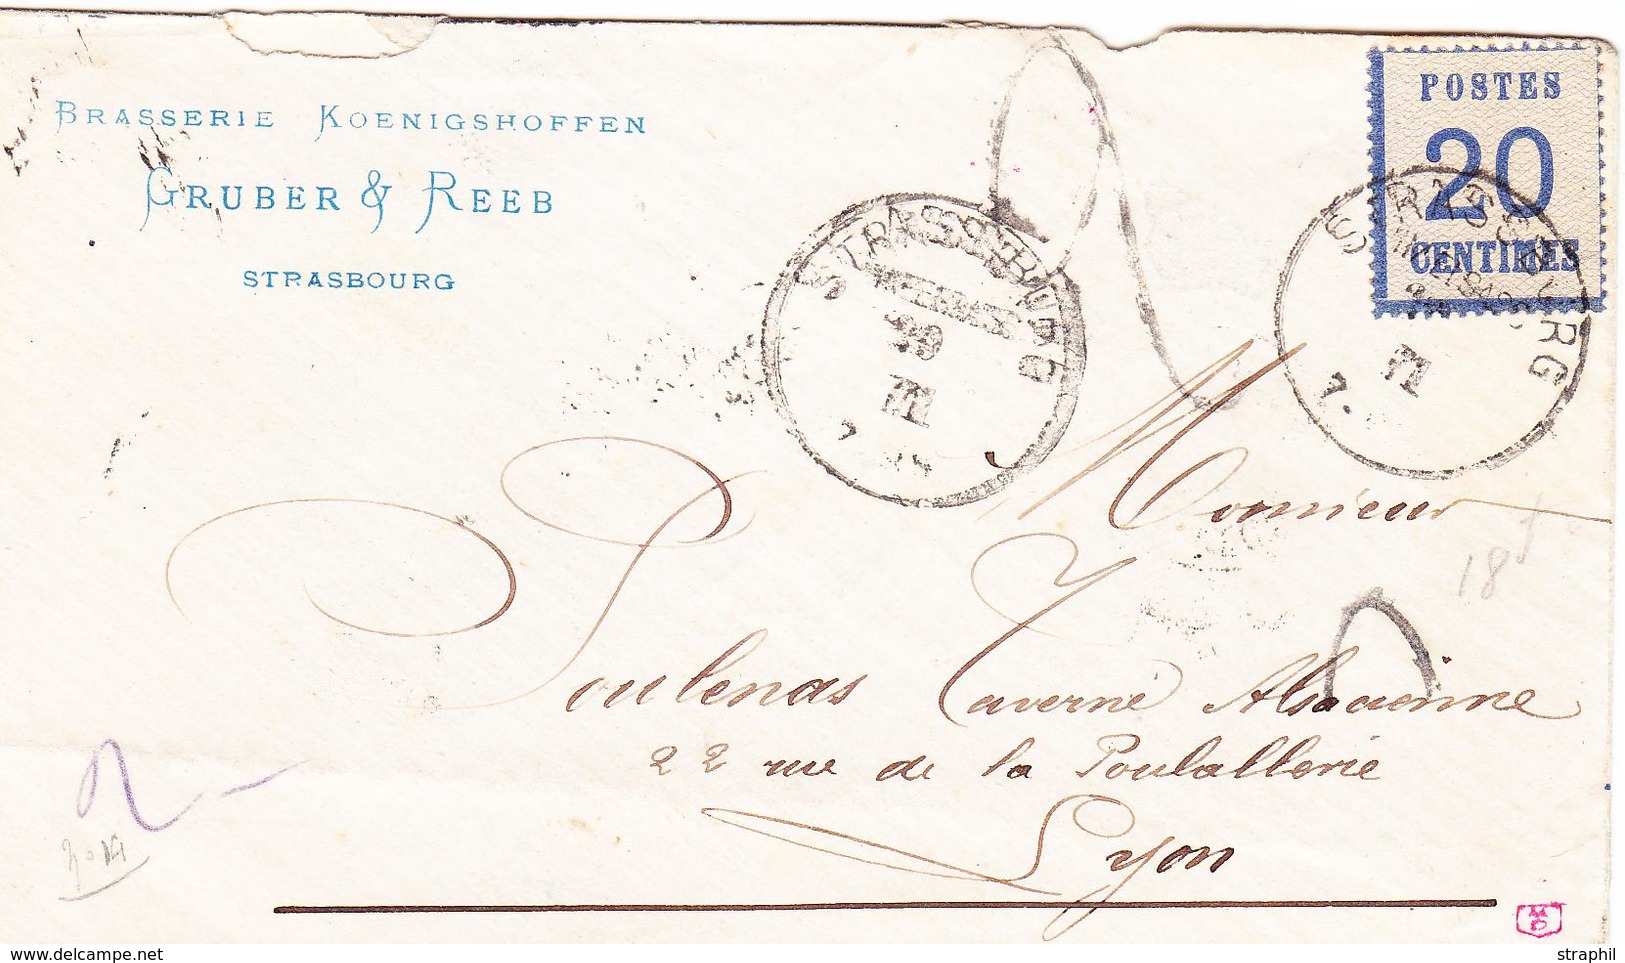 BRASSERIE KOENIGSHOFFEN
GRUBER & REEB
STRASBOURG
POSTES
20
CENTIMES
STRASSBURG
29
71
STRASSBURG
71
7.
Monsieur
Poulenas Taverne Alsacienne
22 rue de la Poulallerie
Lyon
18
2
MD
straphil